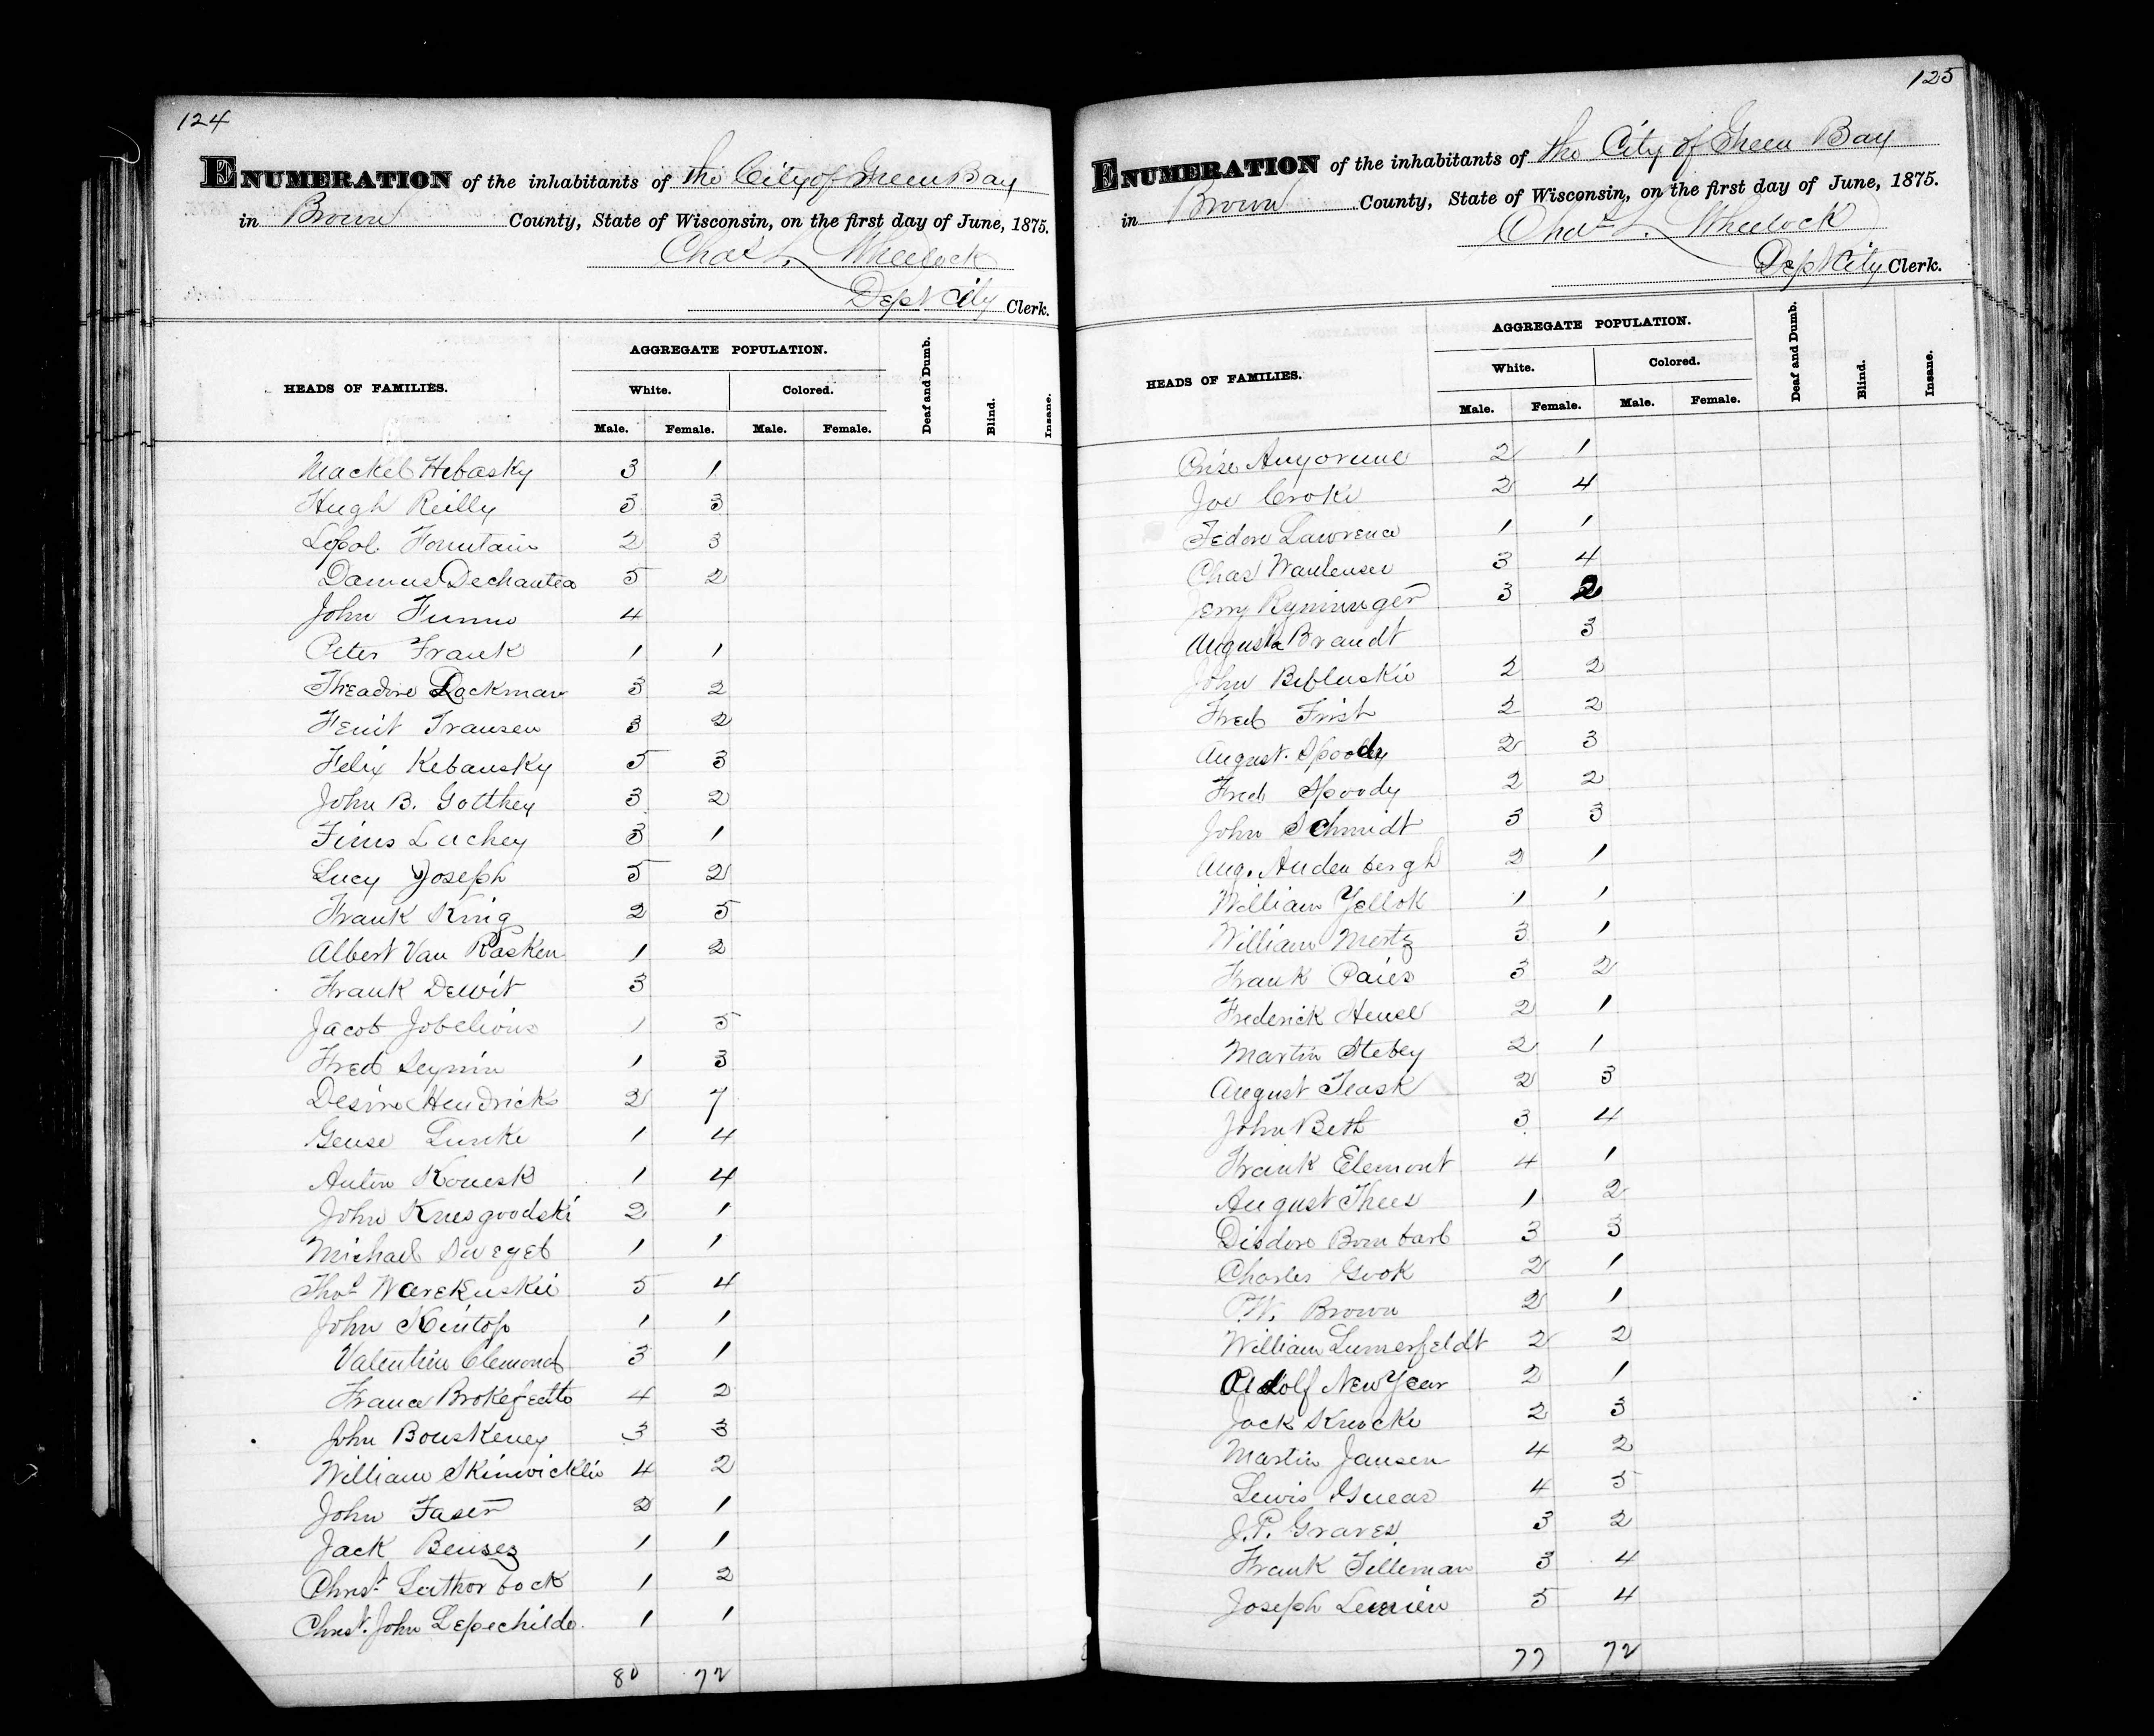 124
ENUMERATION of the inhabitants of the City of Green Bay
in Brown County, State of Wisconsin, on the first day of June, 1875.
Chas L. Wheelock
Dept City Clerk.
HEADS OF FAMILIES.
AGGREGATE POPULATION.
White. Colored.
Male. Female. Male. Female.
Deaf and Dumb.
Blind.
Insane.
Mackel Hebasky 3 1
Hugh Reilly 5 3
Fountain 2 3
Dechantea 5 2
John 4
Peter Frank 1 1
Theadore Dockman 3 2
Fransen 3 2
Felix Kebansky 5 3
John B. Gotthey 3 2
Luchey 3 1
Lucy Joseph 5 2
Frank King 2 5
Albert Van Rasken 1 2
Frank Dewit 3
Jacob 1 5
Fred 1 3
Desire Hendricks 2 7
1 4
Anton Konesk 1 4
John Knesgoodski 2 1
Michael 1 1
Thos Warekuskie 5 4
John Kintop 1 1
Valentine Clemond 3 1
4 2
John Bouskeney 3 3
William 4 2
John Faser 2 1
Jack 1 1
Christ Luthor bock 1 2
Christ. John Lepechildo. 1 1
80 72
125
ENUMERATION of the inhabitants of the City of Green Bay
in Brown County, State of Wisconsin, on the first day of June, 1875.
Chas L. Wheelock
Dept City Clerk.
HEADS OF FAMILIES.
AGGREGATE POPULATION.
White. Colored.
Male. Female. Male. Female.
Deaf and Dumb.
Blind.
Insane.
2 1
Joe Croke 2 4
Lawrence 1 1
Chas 3 4
Jerry Ryminger 3 2
Augusta Brandt 3
John 2 2
Fred Frish 2 2
August. Spoody 2 3
Fred Spoody 2 2
John Schmidt 3 3
Aug. Audenbergh 2 1
William Yellok 1 1
William Mertz 3 1
Frank Paies 3 2
Frederick Hensel 2 1
Martin Stebey 2 1
August Teask 2 3
John Beth 3 4
Frank Elemont 4 1
August Thees 1 2
Diodore Bombarb 3 3
Charles Gook 2 1
Brown 2 1
William Lumerfeldt 2 2
Adolf New Year 2 1
Jack Knocke 2 3
Martin Jansen 4 2
Lewis 4 5
J.P. Graves 3 2
Frank Tilleman 3 4
Joseph 5 4
77 72